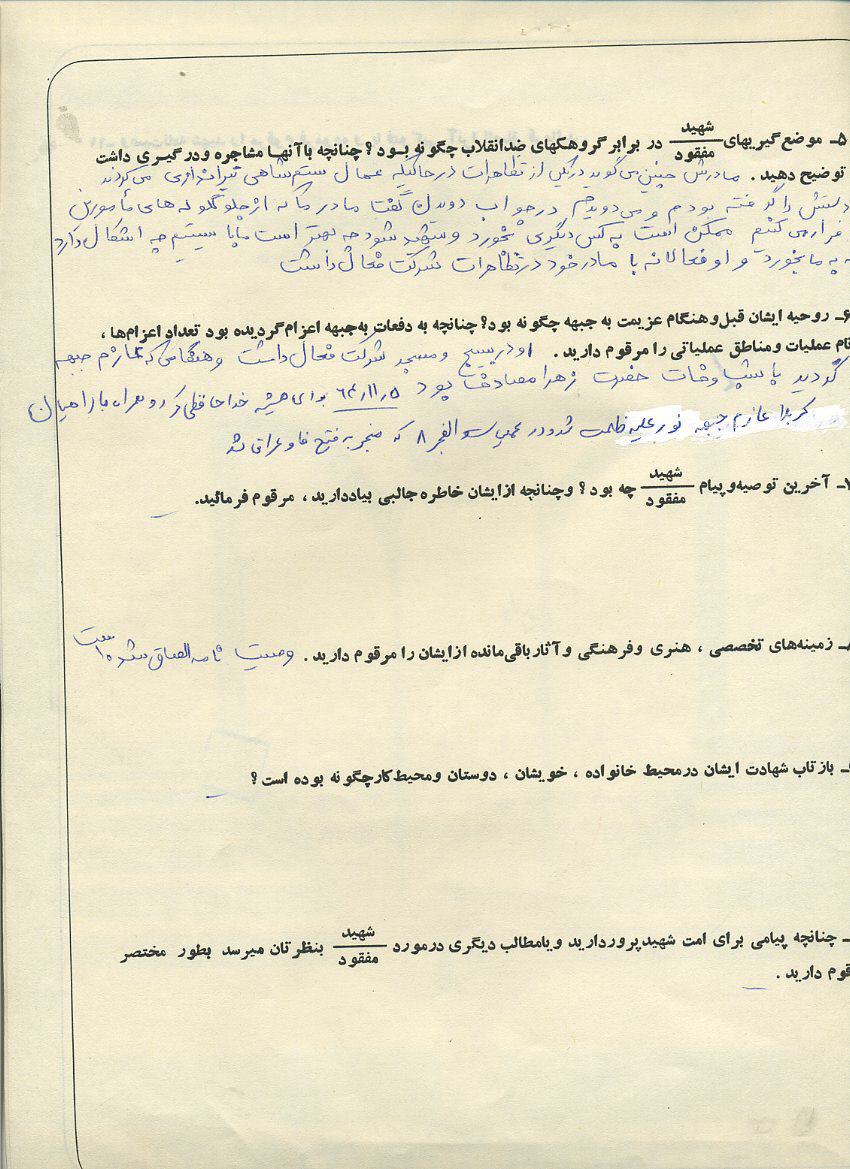 ۵ـ موضع گیریهای شهید/مفقود در برابر گروهکهای ضدانقلاب چگونه بود؟ چنانچه باآنها مشاجره ودرگیری داشت
توضیح دهید. مادرش چنین می گوید در یکی از تظاهرات در حالیکه عمال ستم شاهی تیراندازی می کردند
دستش را گرفته بودم و می دویدیم در جواب دویدن گفت مادر ما که از جلو گلوله های مأمورین
فرار می کنیم ممکن است به کس دیگری بخورد و شهید شود چه بهتر است ما بایستیم چه اشکال دارد
که به ما بخورد و او فعالانه با مادر خود در تظاهرات شرکت فعال داشت
۶ـ روحیه ایشان قبل وهنگام عزیمت به جبهه چگونه بود؟ چنانچه به دفعات به جبهه اعزام گردیده بود تعداد اعزام‌ها،
نام عملیات ومناطق عملیاتی را مرقوم دارید. او در بسیج و مسجد شرکت فعال داشت و هنگامی که عازم جبهه
گردید با شب وفات حضرت زهرا مصادف بود ۶۴/۱۱/۵ برای همیشه خداحافظی کرد و همراه با راهیان
کربلا عازم جبهه نور علیه ظلمت شد و در عملیات والفجر ۸ که منجر به فتح فاو عراق شد
۷ـ آخرین توصیه وپیام شهید/مفقود چه بود؟ وچنانچه ازایشان خاطره جالبی بیاددارید، مرقوم فرمائید.
ـ زمینه‌های تخصصی، هنری وفرهنگی وآثارباقی‌مانده ازایشان را مرقوم دارید. وصیت نامه الصاق شده است
ـ بازتاب شهادت ایشان درمحیط خانواده، خویشان، دوستان ومحیط کارچگونه بوده است؟
ـ چنانچه پیامی برای امت شهیدپروردارید ویامطالب دیگری درمورد شهید/مفقود بنظرتان میرسد بطور مختصر
قوم دارید.